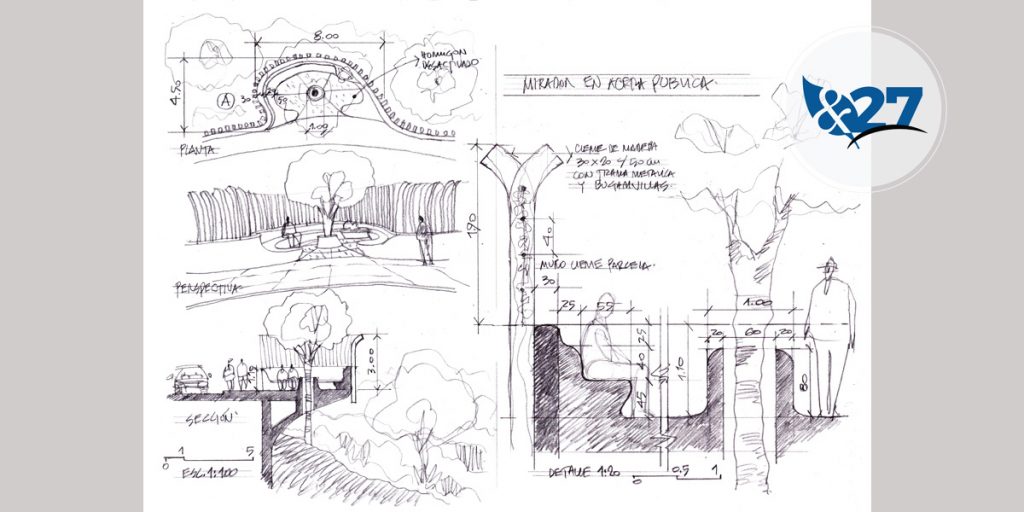 8.00
HORMIGON
DESACTIVADO
4.50
A
1.00
PLANTA
PERSPECTIVA
3.00
SECCIÓN
0 1 5
ESC. 1:100
MIRADOR EN ACERA PUBLICA
&27
CIERRE DE MADERA
30x20 c/50 cm
CON TRAMA METALICA
Y BUGAMVILLAS
190
40
MURO CIERRE PARCELA
30
25 55
25
40
45
1.10
1:00
20 60 20
80
DETALLE 1:20
0 0.5 1